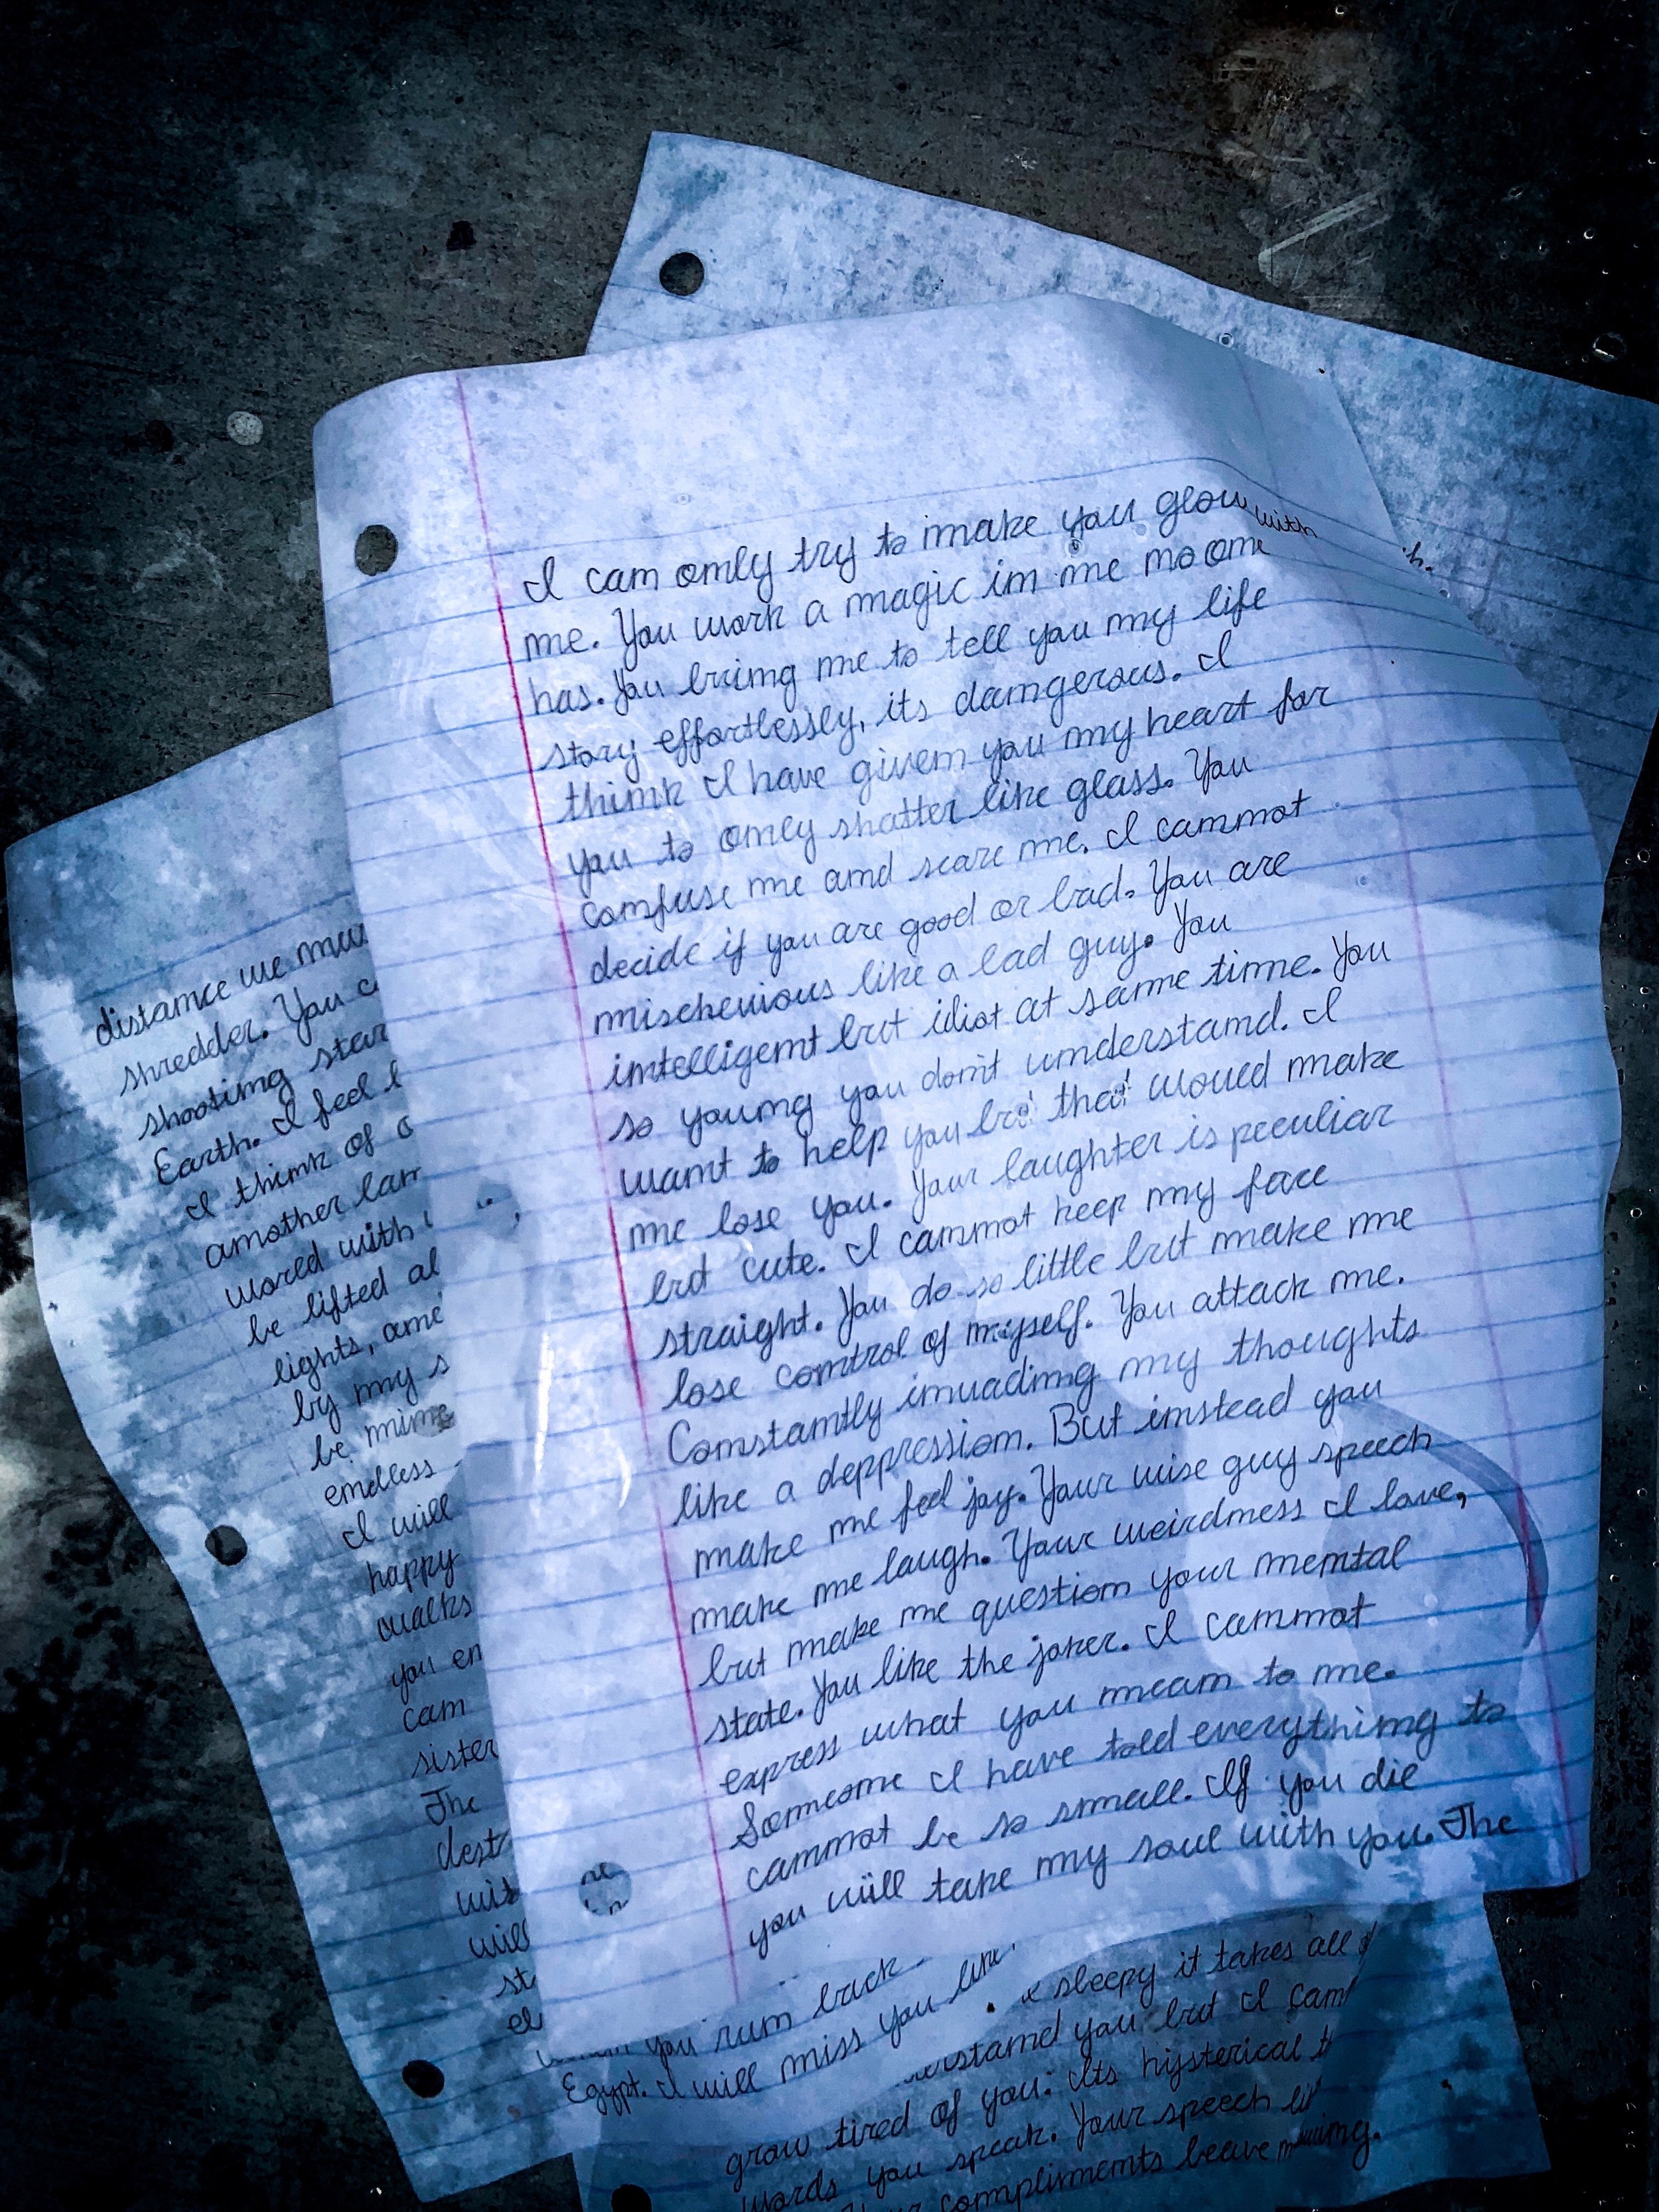 I can only try to make you glow with
me. You work a magic in me no one
has. You bring me to tell you my life
story effortlessly, its dangerous. I
think I have given you my heart for
you to only shatter like glass. You
confuse me and scare me. I cannot
decide if you are good or bad. You are
mischevious like a bad guy. You
intelligent but idiot at same time. You
so young you don't understand. I
want to help you but that would make
me lose you. Your laughter is peculiar
but cute. I cannot keep my face
straight. You do so little but make me
lose control of myself. You attack me.
Constantly invading my thoughts
like a deppression. But instead you
make me feel joy. Your wise guy speech
make me laugh. Your weirdness I love,
but make me question your mental
state. You like the joker. I cannot
express what you mean to me.
Someone I have told everything to
cannot be so small. If you die
you will take my soul with you. The
distance we
shredder. You
shooting star
Earth. I feel
I think of
another
world with
be lifted
lights,
by my
be mine
endless
I will
happy
qualks
you
can
sister
The
will
you run back
Egypt. I will miss you like
sleepy it takes all
you but I
grow tired of you. Its hysterical
words you speak. Your speech
compliments leave